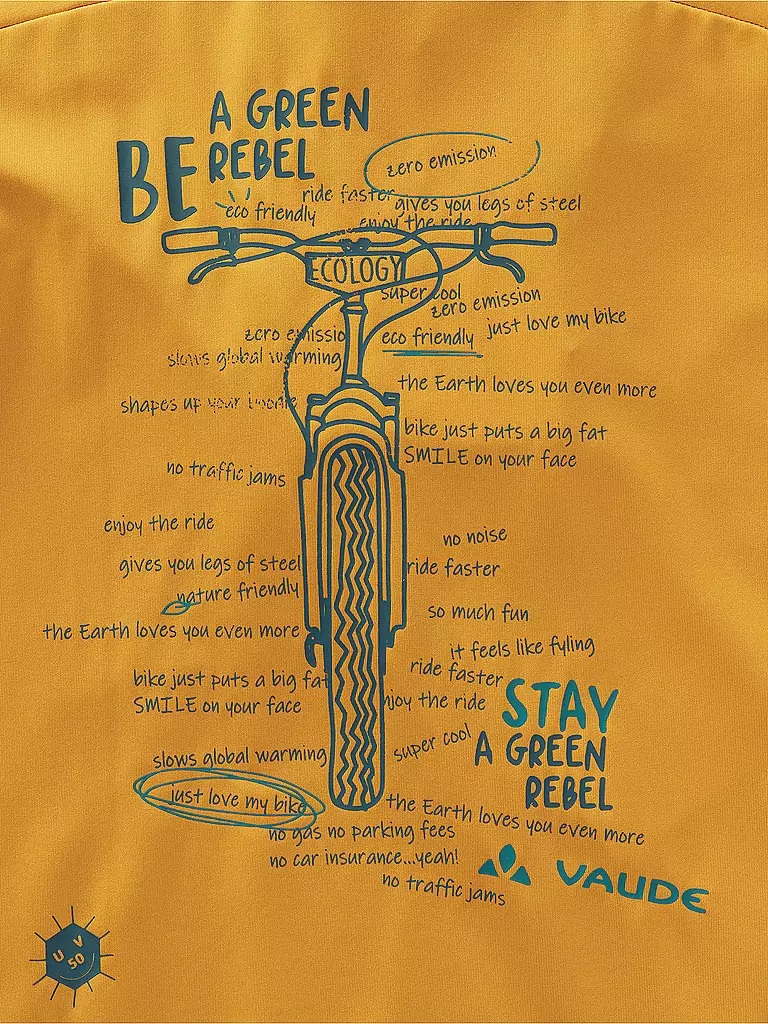 BE A GREEN
REBEL
zero emission
ride faster
gives you legs of steel
eco friendly
enjoy the ride
ECOLOGY
super cool
zero emission
just love my bike
zero emissio
eco friendly
slows global warming
the Earth loves you even more
shapes up your
bike just puts a big fat
SMILE on your face
no traffic jams
enjoy the ride
no noise
gives you legs of steel
ride faster
nature friendly
so much fun
the Earth loves you even more
it feels like fyling
ride faster
bike just puts a big fat
SMILE on your face
njoy the ride
STAY
A GREEN
REBEL
super cool
slows global warming
just love my bike
the Earth loves you even more
no gas no parking fees
no car insurance...yeah!
no traffic jams
VAUDE
UV
50